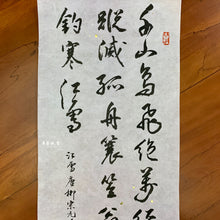 千山鳥飛絕萬徑
蹤滅孤舟蓑笠
釣寒江雪
江雪唐柳宗元